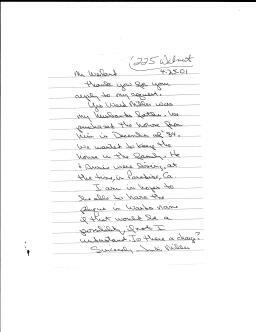 1225 Walnut
4-25-01
Mr Weiland
Thank you for your
reply to my request.
Yes Ward Miller was
my husbands father. We
purchased the house from
him in December of '84.
We wanted to keep the
house in the family. He
& were living, at
the time, in Paradise, Ca
I am in hopes to
be able to have the
plaque in Wards name
if that would be a
possibility, if not I
understand. Is there a charge?
Sincerely Miller